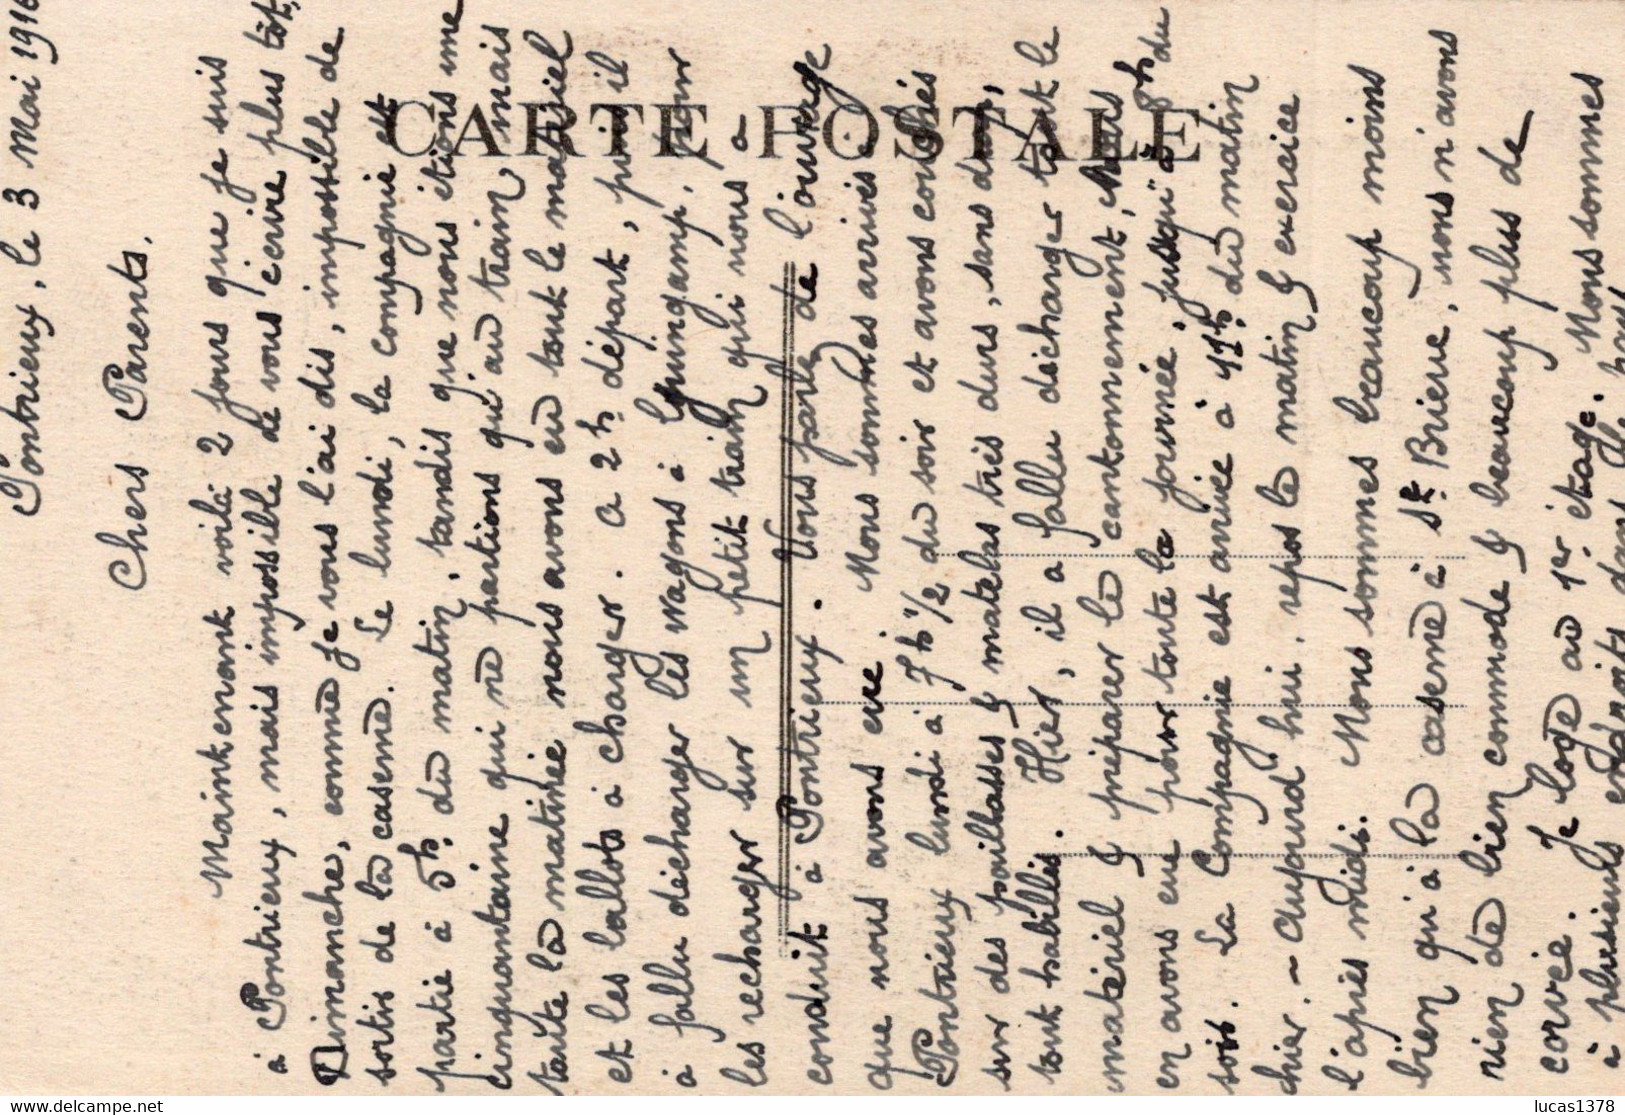 Pontrieux, le 3 Mai 1916
Chers Parents.
Maintenant voilà 2 jours que je suis
à Pontrieux, mais impossible de vous écrire plus tôt,
Dimanche, comme je vous l'ai dis, impossible de
sortis de la caserne. Le lundi, la compagnie est
partie à 5h. du matin, tandis que nous étions une
cinquantaine qui ne partions qu'au train, mais
toute la matinée nous avons eu tout le matériel
et les ballots à charger. A 2h. départ, puis il
a fallu décharger les wagons à Guingamp, pour
les recharger sur un petit train qui nous a
conduit à Pontrieux. Vous parle de l'ouvrage
que nous avons eue. Nous sommes arrivés à
Pontrieux lundi à 7h 1/2 du soir et avons couchés
sur des paillasses & matelas très durs, sans drap,
tout habillés. Hier, il a fallu décharger tout le
matériel & préparer le cantonnement, Nous
en avons eue pour toute la journée, jusqu'à 8h du
soir. La Compagnie est arrivée à 11h. du matin
hier. - Aujourd'hui, repos le matin & exercice
l'après midi. Nous sommes beaucoup moins
bien qu'à la caserne à St. Brieuc, nous n'avons
rien de bien commode & beaucoup plus de
corvée. Je loge au 1er étage. Nous sommes
à plusieurs endroits dans le
CARTE POSTALE
www.delcampe.net
lucas1378